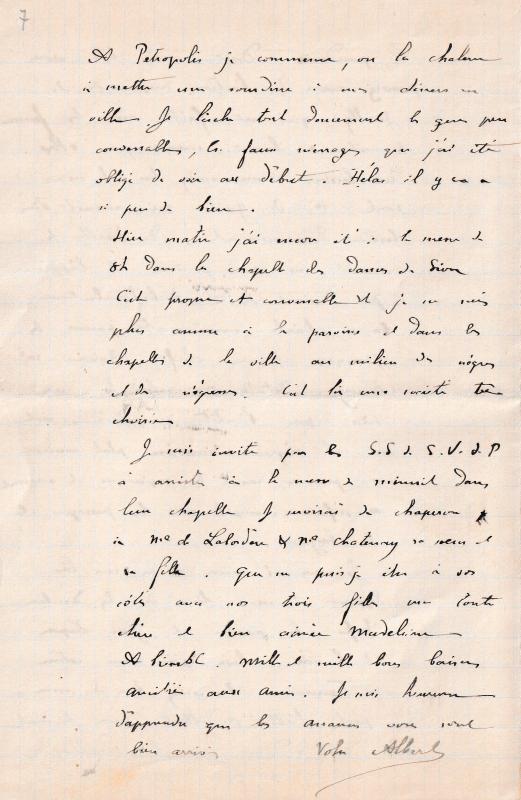 7
A Petropolis je commence, vu la chaleur
à mettre une sourdine à mes diners en
ville. Je lâche tout doucement les gens peu
convenables, les faux ménages que j'ai été
obligé de voir au début. Hélas il y en a
si peu de bien.
Hier matin j'ai encore été à la messe de
8h dans la chapelle des dames de Sion
C'est propre et convenable et je ne suis
plus comme à la paroisse et dans les
chapelles de la ville au milieu de nègres
et de négresses. C'est là une société très
choisie
Je suis invité par les S.S d. S. V. d. P
à assister à la messe de minuit dans
leur chapelle. Je servirai de chaperon
à Me de & Me Chatenay sa soeur et
sa fille. Que ne puis je être à vos
côtés avec nos trois filles ma toute
chère et bien aimée Madeleine
A bientôt. Mille et mille bons baisers
amitiés aux amis. Je suis heureux
d'apprendre que les ananas vous sont
bien arrivés Votre Albert